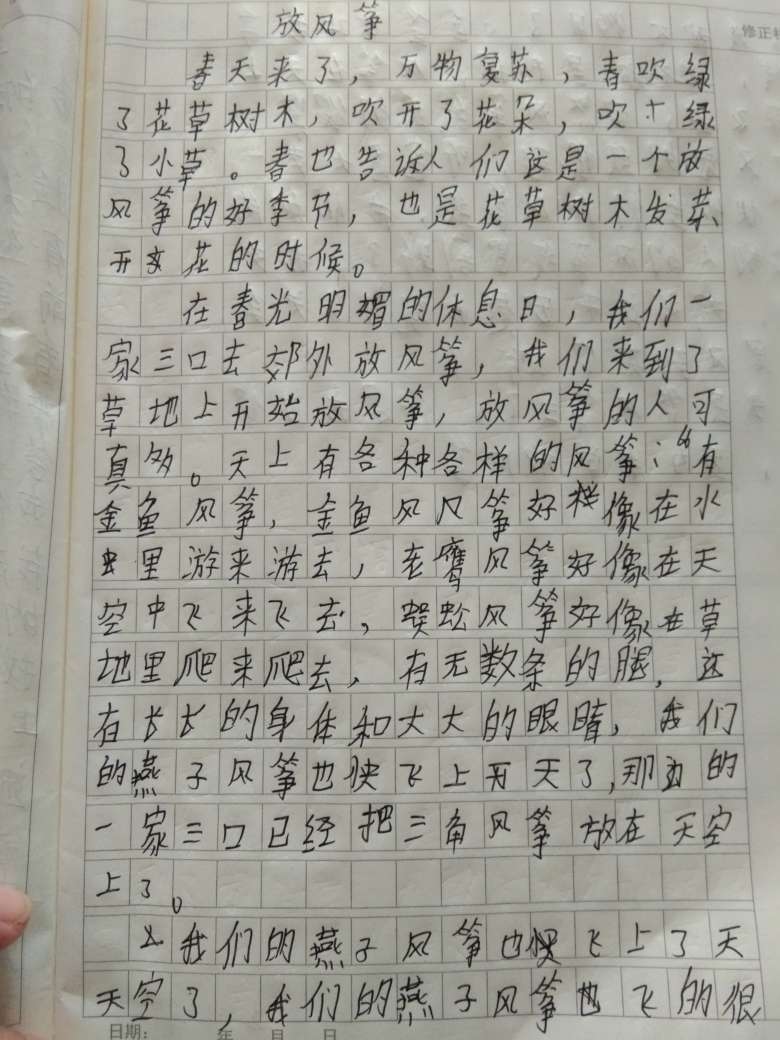 放风筝
春天来了，万物复苏，春吹绿
了花草树木，吹开了花朵，吹绿
了小草。春也告诉人们这是一个放
风筝的好季节，也是花草树木发芽
开花的时候。
在春光明媚的休息日，我们一
家三口去郊外放风筝，我们来到了
草地上开始放风筝，放风筝的人可
真多。天上有各种各样的风筝：“有
金鱼风筝，金鱼风筝好像在水
里游来游去，老鹰风筝好像在天
空中飞来飞去，蜈蚣风筝好像在草
地里爬来爬去，有无数条的腿，这
有长长的身体和大大的眼睛，我们
的燕子风筝也快飞上天了，那边的
一家三口已经把三角风筝放在天空
上了。
我们的燕子风筝也飞上了天
天空了，我们的燕子风筝也飞的很
日期： 年 月 日
修正